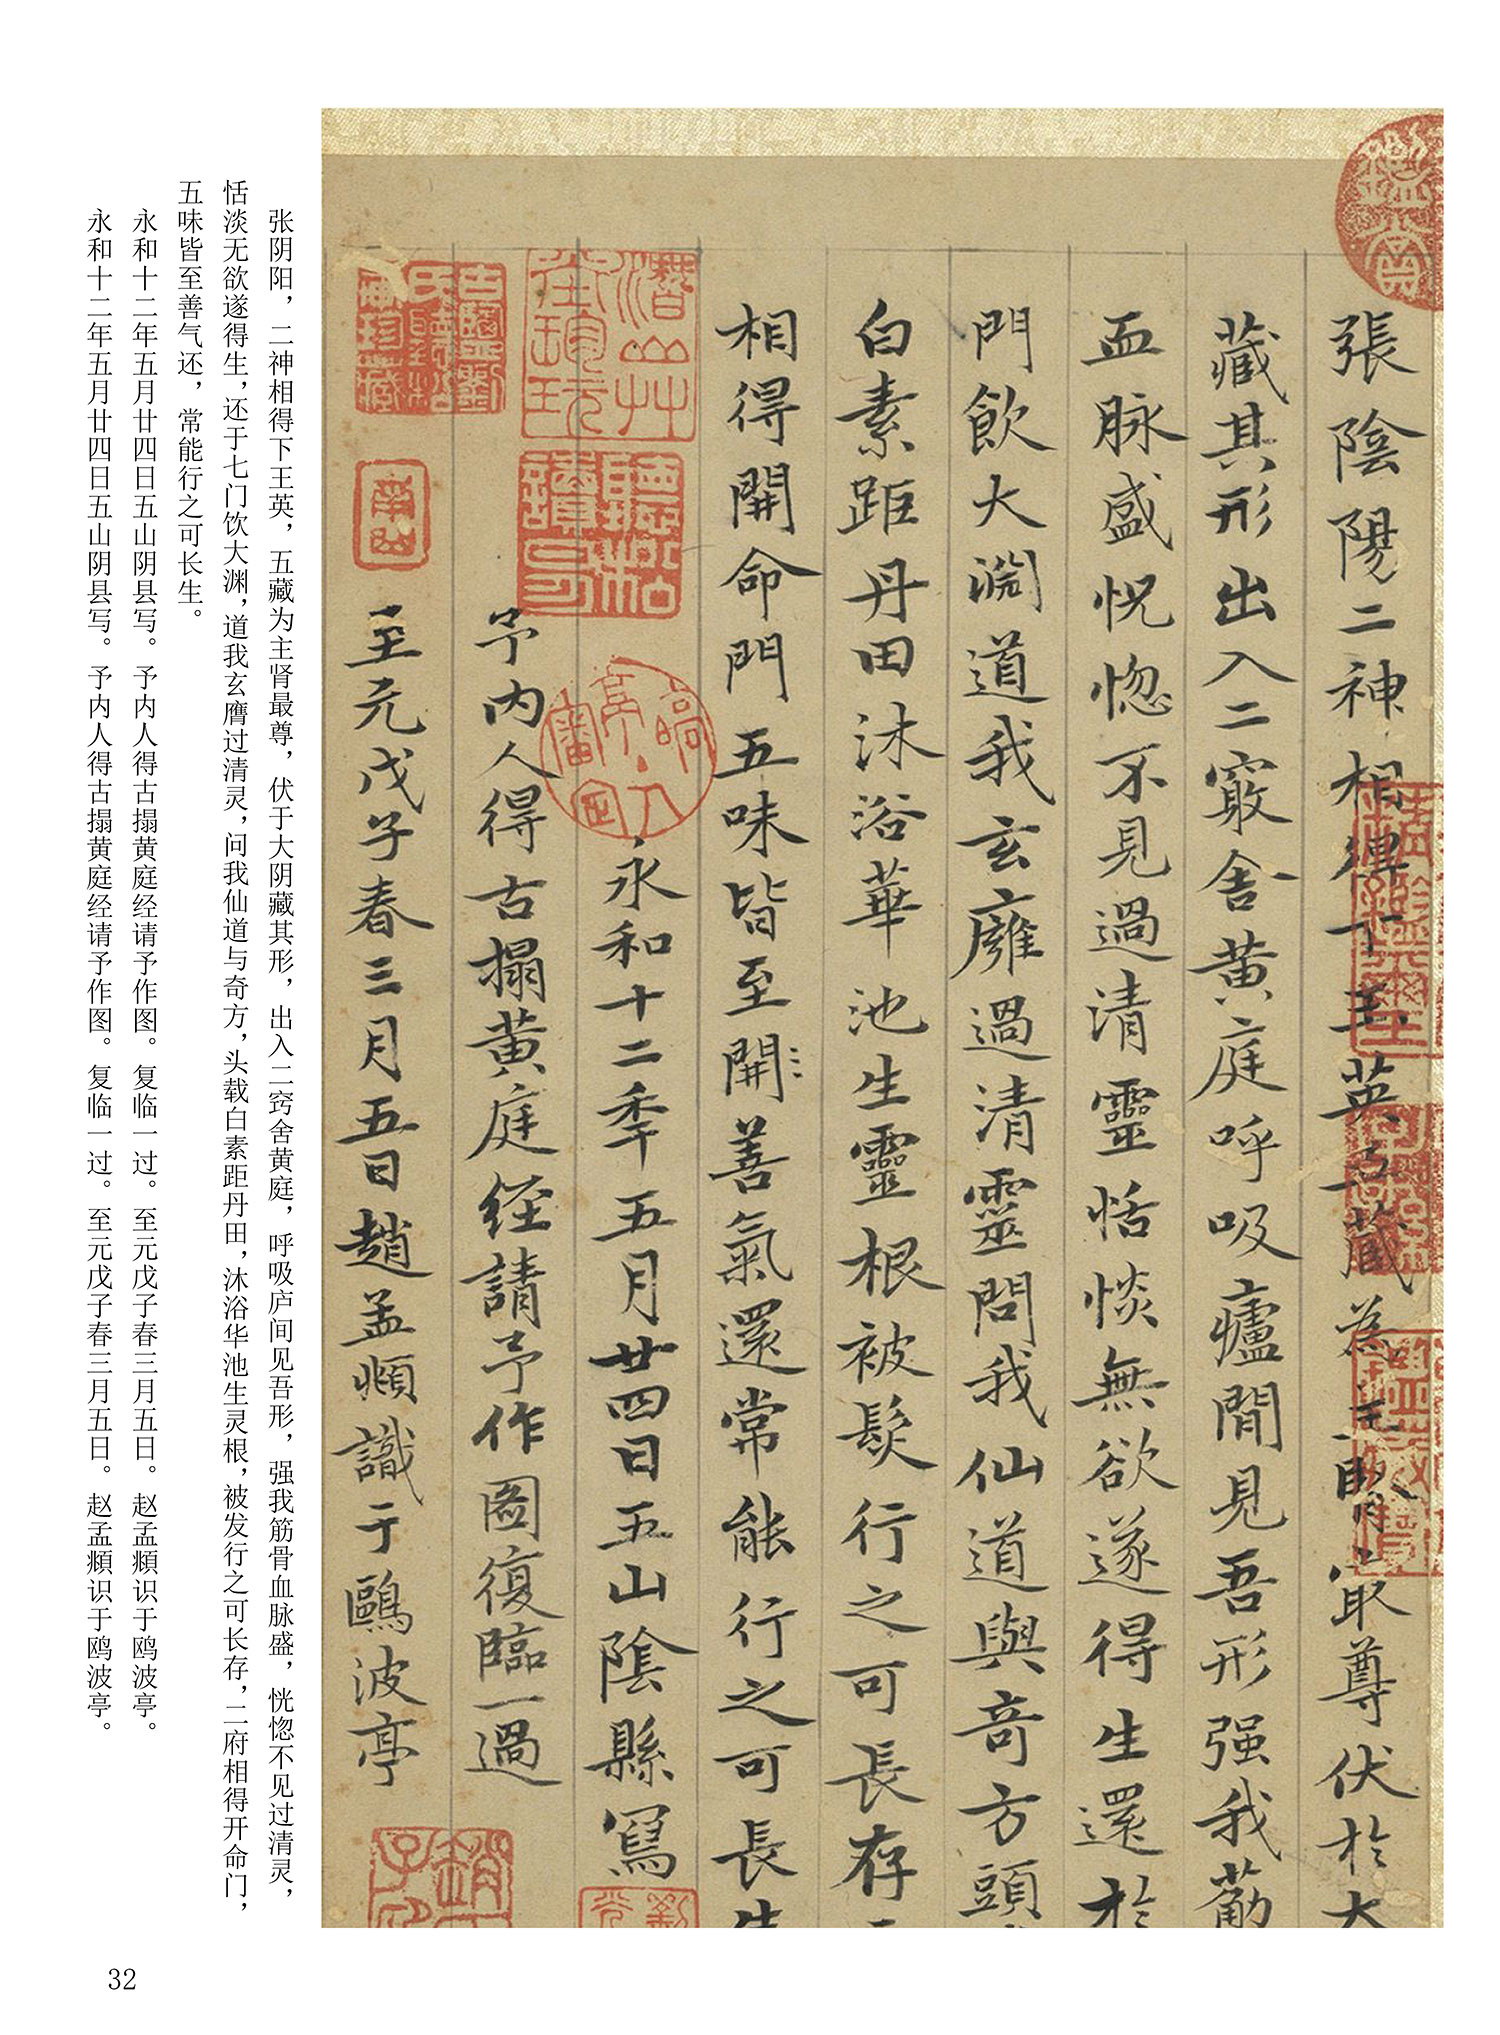 張陰陽二神相得下王英五藏為主腎㝡尊伏於大
藏其形出入二竅舍黄庭呼吸廬間見吾形强我筋
血脉盛恍惚不見過清靈恬惔無欲遂得生還於
門飲大淵道我玄癰過清靈問我仙道與奇方頭
白素距丹田沐浴華池生靈根被髮行之可長存
相得開命門五味皆至開善氣還常能行之可長生
永和十二年五月廿四日五山陰縣寫
予内人得古搨黄庭經請予作圖復臨一過
至元戊子春三月五日趙孟頫識于鷗波亭
张阴阳，二神相得下王英，五藏为主肾最尊，伏于大阴藏其形，出入二窍舍黄庭，呼吸庐间见吾形，强我筋骨血脉盛，恍惚不见过清灵，
恬淡无欲遂得生，还于七门饮大渊，道我玄膺过清灵，问我仙道与奇方，头载白素距丹田，沐浴华池生灵根，被发行之可长存，二府相得开命门，
五味皆至善气还，常能行之可长生。
永和十二年五月廿四日五山阴县写。予内人得古搨黄庭经请予作图。复临一过。至元戊子春三月五日。赵孟頫识于鸥波亭。
永和十二年五月廿四日五山阴县写。予内人得古搨黄庭经请予作图。复临一过。至元戊子春三月五日。赵孟頫识于鸥波亭。
32